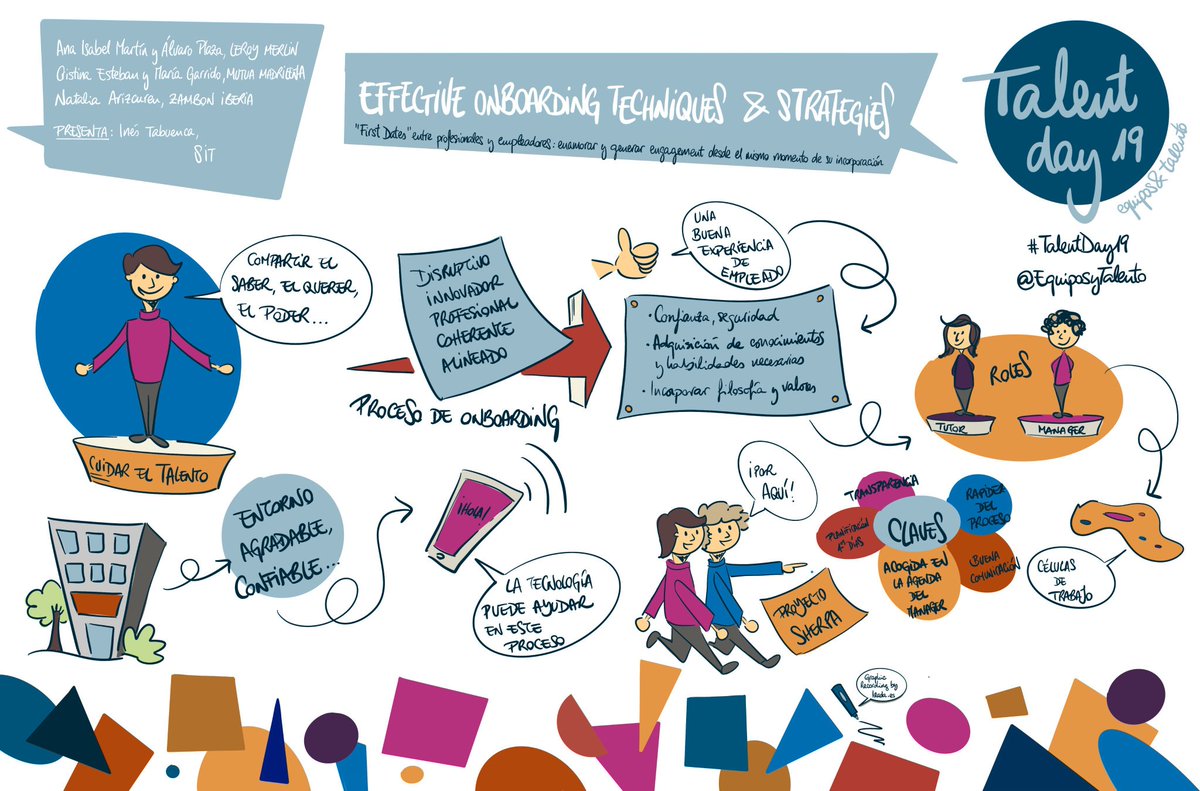 Ana Isabel Martín y Álvaro Plaza, LEROY MERLIN
Cristina Esteban y María Garrido, MUTUA MADRILEÑA
Natalia Arizcuren, ZAMBON IBERIA
PRESENTA: Inés Tabuenca,
SIT
EFFECTIVE ONBOARDING TECHNIQUES & STRATEGIES
"First Dates" entre profesionales y empleadores: enamorar y generar engagement desde el mismo momento de su incorporación
Talent
day 19
equipos & talento
#TalentDay19
@EquiposyTalento
COMPARTIR EL
SABER, EL QUERER,
EL PODER...
CUIDAR EL TALENTO
DISRUPTIVO
INNOVADOR
PROFESIONAL
COHERENTE
ALINEADO
PROCESO DE ONBOARDING
UNA
BUENA
EXPERIENCIA
DE
EMPLEADO
• Confianza, seguridad
• Adquisición de conocimientos
y habilidades necesarias
• Incorporar filosofía y valores
ROLES
TUTOR
MANAGER
ENTORNO
AGRADABLE,
CONFIABLE...
¡HOLA!
LA TECNOLOGÍA
PUEDE AYUDAR
EN ESTE
PROCESO
¡POR
AQUÍ!
PROYECTO
SHERPA
CLAVES
TRANSPARENCIA
RAPIDEZ
DEL
PROCESO
PLANIFICACIÓN
1os DÍAS
BUENA
COMUNICACIÓN
ACOGIDA EN
LA AGENDA
DEL
MANAGER
CÉLULAS
DE
TRABAJO
Graphic
Recording by